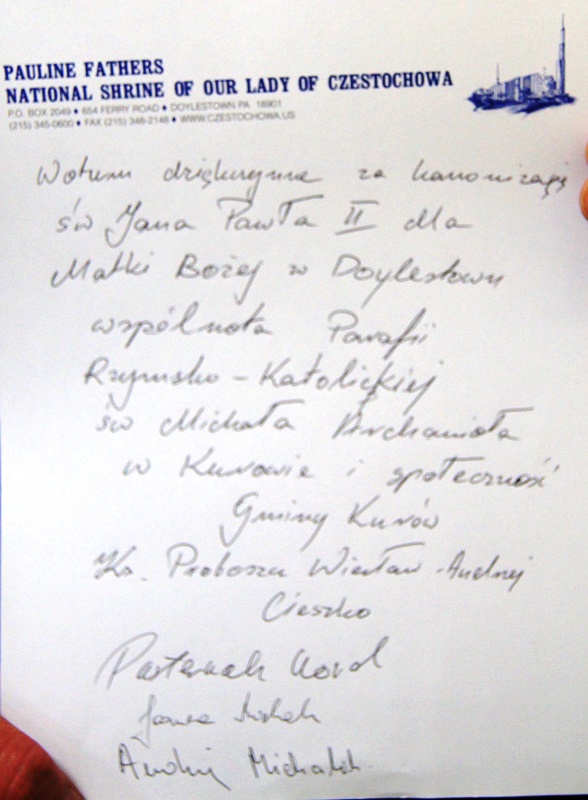 PAULINE FATHERS
NATIONAL SHRINE OF OUR LADY OF CZESTOCHOWA
P.O. BOX 2049 ♦ 654 FERRY ROAD ♦ DOYLESTOWN PA 18901
(215) 345-0600 ♦ FAX (215) 348-2148 ♦ WWW.CZESTOCHOWA.US
Wotum dziękczynne za kanonizację
św Jana Pawła II dla
Matki Bożej w Doylestown
wspólnota Parafii
Rzymsko-Katolickiej
św Michała Archanioła
w Kurowie i społeczność
Gminy Kurów
Ks. Proboszcz Wiesław-Andrzej
Cieszko
Andrzej